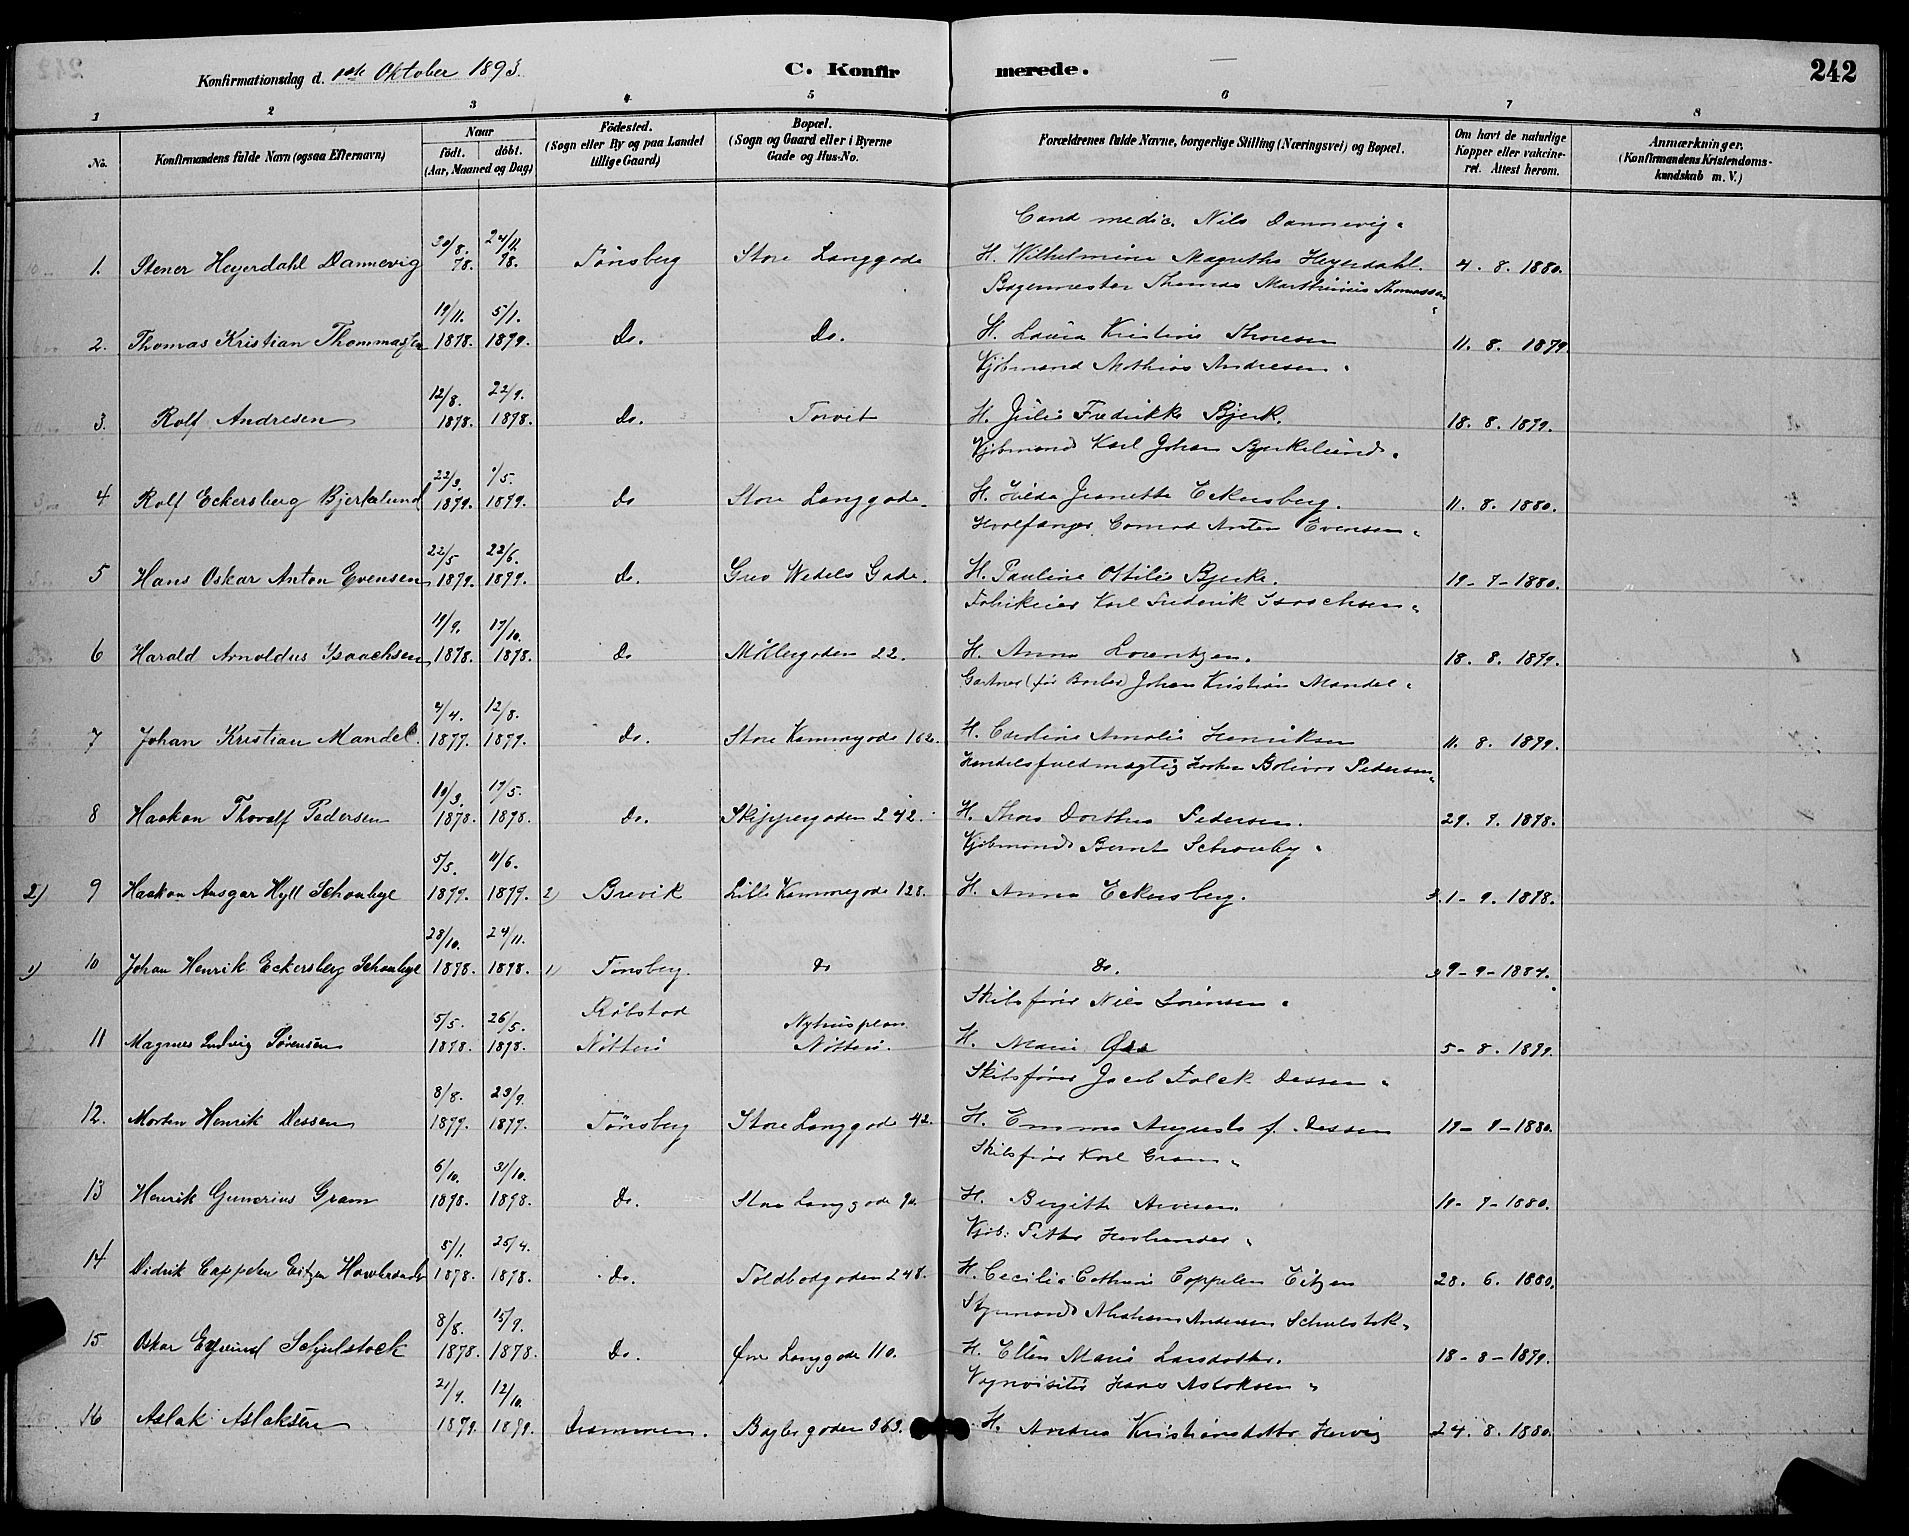 Konfirmationsdag d. 1ste Oktober 1893.
C. Konfirmerede.
242
1 2 3 4 5 6 7 8
No.
Konfirmandens fulde Navn (ogsaa Efternavn)
Naar
födt. döbt.
(Aar, Maaned og Dag)
Födested.
(Sogn eller By og paa Landet
tillige Gaard)
Bopæl.
(Sogn og Gaard eller i Byerne
Gade og Hus-No.
Forældrenes fulde Navne, borgerlige Stilling (Næringsvei) og Bopæl.
Om havt de naturlige
Kopper eller vakcine-
ret. Attest herom.
Anmærkninger.
(Konfirmandens Kristendoms-
kundskab m. V.)
Cand medic. Nils Dannevig.
30/8. 24/11.
1. Stener Heyerdahl Dannevig 78. 78. Tønsberg Store Langgade H. Wilhelmine Magrethe Heyerdahl. 4. 8. 1880.
Bagermester Thomas Marthinius Thomassen
19/11. 5/1.
2. Thomas Kristian Thommassen 1878. 1879. Do. Do. H. Laura Kristine Thoresen 11. 8. 1879
Kjöbmand Mathias Andresen.
12/8. 22/9.
3. Rolf Andresen 1878. 1878. Do. Torvet H. Julie Fredrikke Bjerk. 18. 8. 1879.
Kjöbmand Karl Johan Bjerkelund.
22/3. 1/5.
4 Rolf Eckersberg Bjerkelund 1879. 1879. Do Store Langgade. H. Hilda Jeanette Eckersberg. 11. 8. 1880.
Hvalfanger Conrad Anton Evensen.
22/5 22/6.
5 Hans Oskar Anton Evensen 1879. 1879. Do. Grev Wedels Gade. H. Pauline Ottilie Bjerke. 19-7-1880.
Fabrikeier Karl Frederik Isaachsen.
19/9. 17/10.
6 Harald Arnoldus Isaachsen 1878. 1878. Do Møllergaden 22. H. Anna Lorentzen. 18. 8. 1879.
Gartner (før Barber) Johan Kristian Mandel.
4/4. 12/8.
7 Johan Kristian Mandel. 1877. 1877. Do. Store Kammegade 102. H. Caroline Amalie Henriksen 11. 8. 1879.
Handelsfuldmægtig Haakon Bolivar Pedersen.
19/3. 17/5.
8 Haakon Thoralf Pedersen 1878. 1878. Do. Skippergaden 242. H. Thora Dorthea Pedersen. 29. 7. 1878.
Kjöbmand Bernt Schouby.
5/5. 11/6.
2) 9 Haakon Ansgar Hyll Schoubye 1877. 1877. 2) Brevik Lille Kammegade 128. H. Anna Eckersberg. 1-9. 1878.
28/10. 24/11.
1) 10 Johan Henrik Eckersberg Schoubye 1878. 1878. 1) Tønsberg. Do Do. 9-9-1884.
Skibsfører Nils Sørensen.
5/5. 26/5. Nyhusplan
11 Magnus Ludvig Sørensen 1878. 1878. Nøtterø Nøtterø. H. Marie 5-8. 1879.
Skibsfører Jacob Falck Dessen.
8/8. 23/9.
12. Morten Henrik Dessen 1877. 1877. Tønsberg Store Langgade 42. H. Emma Augusta f. Dessen 19-7-1880.
Skibsfører Karl Gram.
6/10. 31/10.
13 Henrik Gunerius Gram 1878. 1878. Do. Store Langgade 90. H. Birgitte Arvesen. 19-7-1880.
Kjöb: Petter
5/1. 25/4.
14 Didrik Cappelen Eitzen 1878. 1878. Do. Toldbodgaden 248. H. Cecilie Cathrine Cappelen Eitzen 28. 6. 1880.
Styrmand Abraham Andersen Schulstok.
8/8. 15/9.
15 Oskar Eyvind Schjulstock 1878. 1878. Do. Øvre Langgade 110. H. Ellen Marie Larsdatter. 18-8-1879.
Vognvisitør Hans Aslaksen.
21/9. 12/10.
16 Aslak Aslaksen 1879. 1879. Drammen. Baglergaden 363. H. Andrea Kristiansdatter 24. 8. 1880.